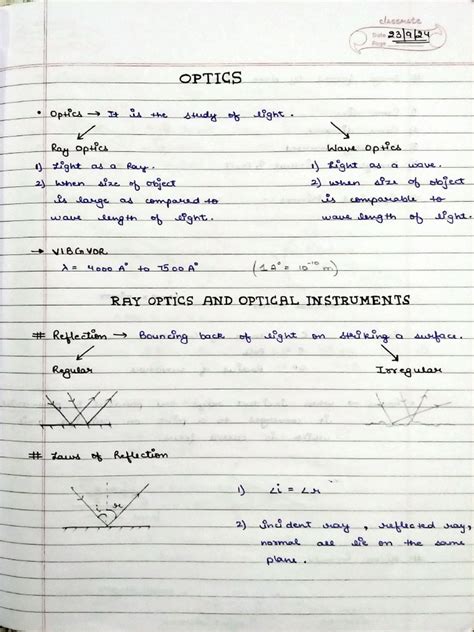 classmate
Date 23/9/24
Page
OPTICS
• Optics → It is the study of light.
Ray Optics
1) Light as a Ray.
2) When size of object
is large as compared to
wave length of light.
Wave Optics
1) Light as a wave.
2) When size of object
is comparable to
wave length of light.
→ VIBGYOR
λ = 4000 A° to 7500 A° (1A° = 10⁻¹⁰ m)
RAY OPTICS AND OPTICAL INSTRUMENTS
# Reflection → Bouncing back of light on striking a surface.
Regular Irregular
# Laws of Reflection
i r
1) ∠i = ∠r
2) Incident ray, reflected ray,
normal all lie on the same
plane.